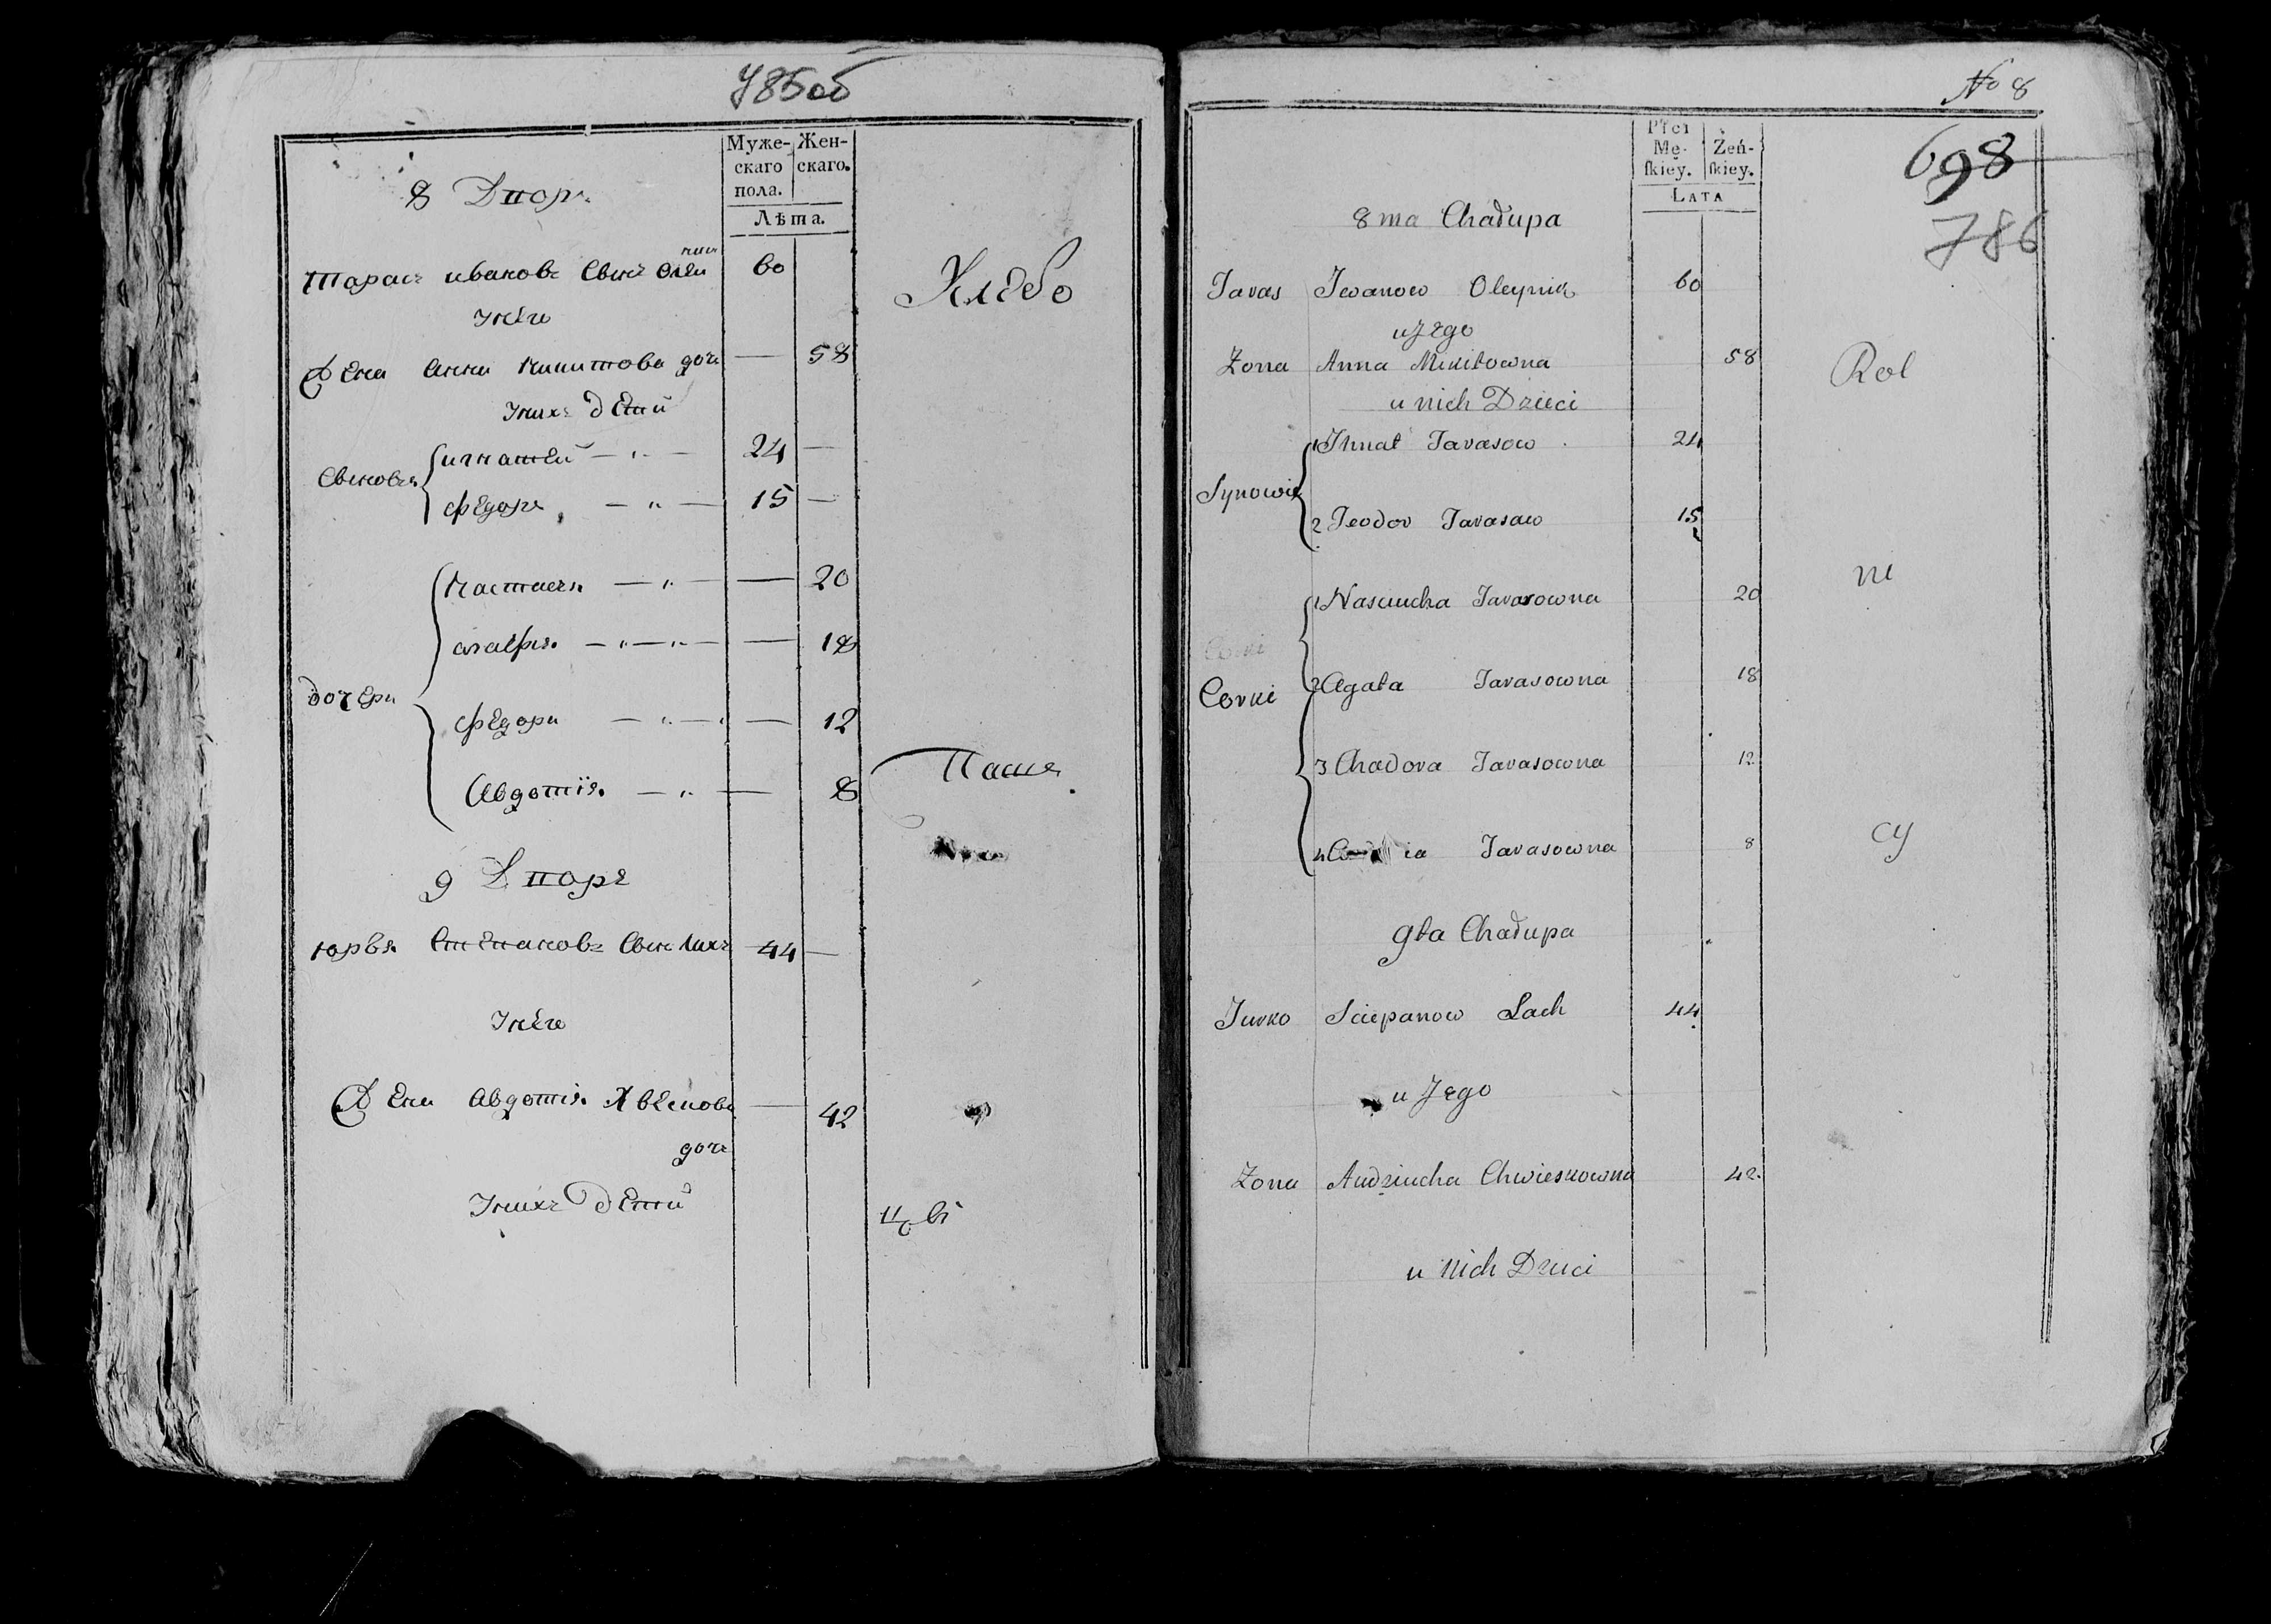 785об
Муже- Жен-
скаго скаго.
пола.
Лѣта.
8 Дворъ
Тарасъ ивановъ Сынъ Олей 60
никъ
Унего
Жена Анна Микитова дочь — 58
Унихъ дети
Хлебо
Сыновья
игнатей — 24 —
Федоръ — 15 —
дочери
Настася — — 20
агафия — — 18
Федора — — 12
Авдотия — — 8
Паше
9 Дворъ
юрья Степановъ Сынъ Лахъ 44 —
Унего
Жена Авдотия Хвесковa — 42
дочь
Унихъ дети
цы
No 8
698
786
Płci
Mę- Żeń-
ſkiey. ſkiey.
LATA
8ma Chałupa
Taras Iwanow Oleynik 60
u Jego
Zona Anna Mikitowna 58
u nich Dzieci
Synowie
1 Ihnat Tarasow 24
2 Teodor Tarasow 15
Corki
1 Nasciucha Tarasowna 20
2 Agata Tarasowna 18
3 Chadora Tarasowna 12
4 Tarasowna 8
Rol
ni
cy
9ta Chałupa
Jurko Sciepanow Lach 44
u Jego
Zona Audziucha Chwieskowna 42
u nich Dzieci